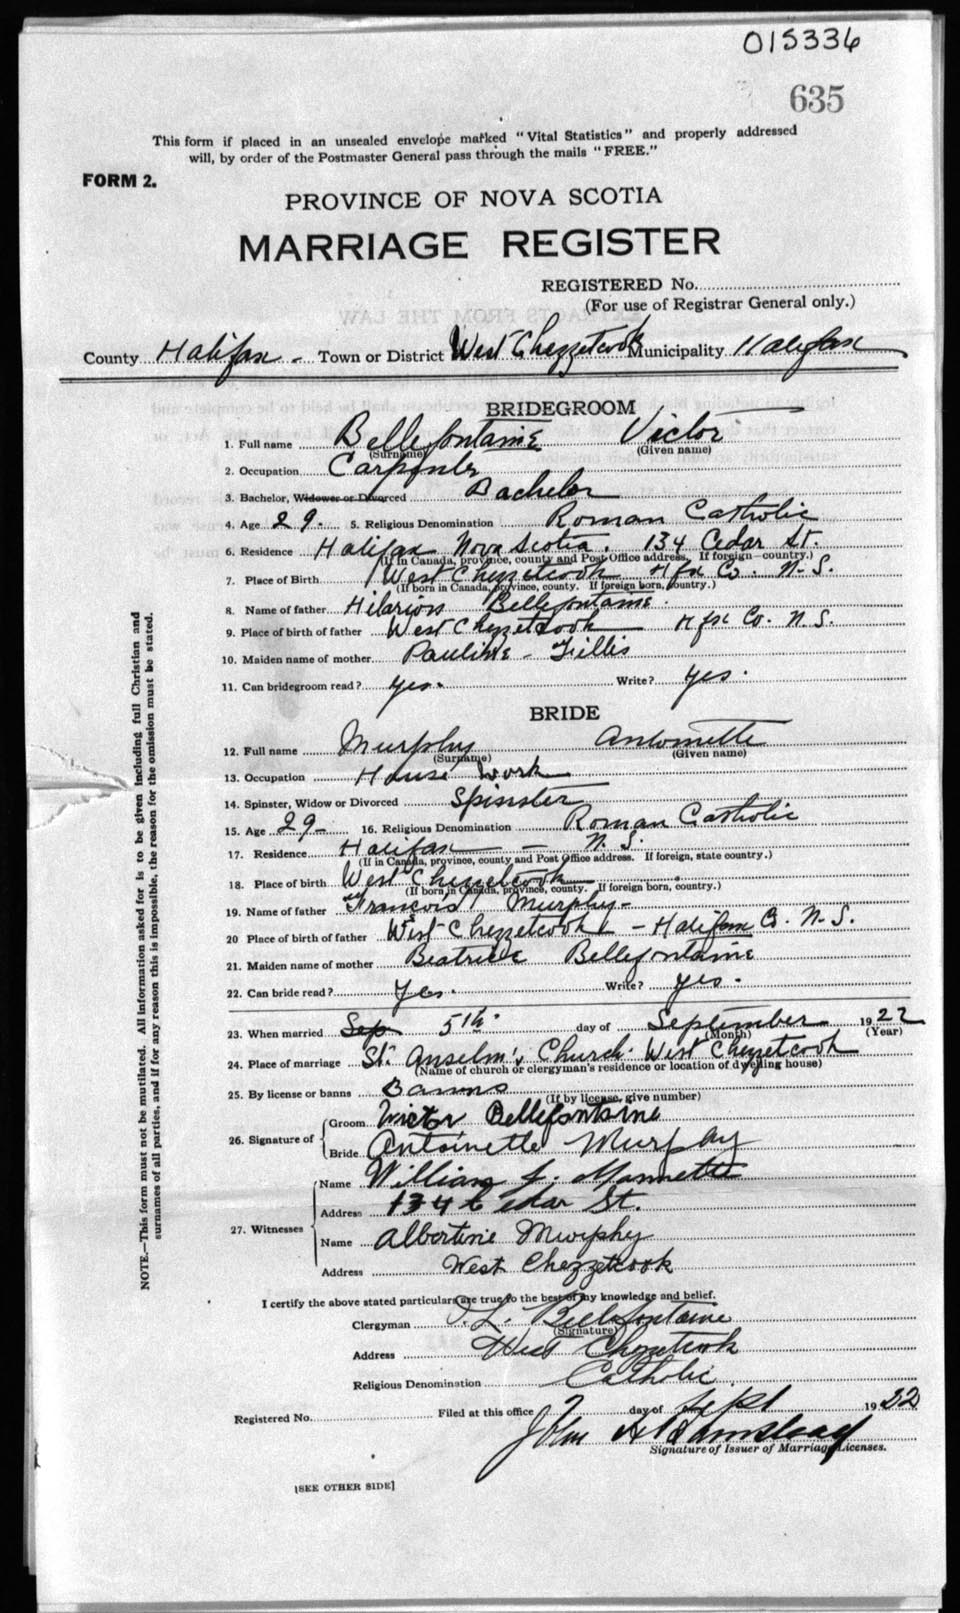 015336
635
This form if placed in an unsealed envelope marked "Vital Statistics" and properly addressed
will, by order of the Postmaster General pass through the mails "FREE."
FORM 2.
PROVINCE OF NOVA SCOTIA
MARRIAGE REGISTER
REGISTERED No.
(For use of Registrar General only.)
County Halifax - Town or District West Chezzetcook Municipality Halifax
BRIDEGROOM
1. Full name Bellefontaine Victor
(Surname) (Given name)
2. Occupation Carpenter
3. Bachelor, Widower or Divorced Bachelor
4. Age 29. 5. Religious Denomination Roman Catholic
6. Residence Halifax Nova Scotia. 134 Cedar St.
(If in Canada, province, county and Post Office address. If foreign country.)
7. Place of Birth West Chezzetcook Hfx Co. N.S.
(If born in Canada, province, county. If foreign born, country.)
8. Name of father Hilarion Bellefontaine.
9. Place of birth of father West Chezzetcook Hfx Co. N.S.
10. Maiden name of mother Pauline -
11. Can bridegroom read? yes. Write? yes.
BRIDE
12. Full name Murphy Antoinette
(Surname) (Given name)
13. Occupation House Work
14. Spinster, Widow or Divorced Spinster
15. Age 29- 16. Religious Denomination Roman Catholic
17. Residence Halifax - N.S.
(If in Canada, province, county and Post Office address. If foreign, state country.)
18. Place of birth West Chezzetcook
(If born in Canada, province, county. If foreign born, country.)
19. Name of father François Murphy-
20 Place of birth of father West Chezzetcook - Halifax Co. N.S.
21. Maiden name of mother Beatrice Bellefontaine
22. Can bride read? Yes. Write? yes.
23. When married Sep 5th. day of September 1922
(Month) (Year)
24. Place of marriage St. Anselm's Church. West Chezzetcook
(Name of church or clergyman's residence or location of dwelling house)
25. By license or banns Banns
(If by license, give number)
26. Signature of Groom Victor Bellefontaine
Bride Antoinette Murphy
27. Witnesses Name William J. Mannette
Address 134 Cedar St.
Name Albertine Murphy
Address West Chezzetcook
I certify the above stated particulars are true to the best of my knowledge and belief.
Clergyman Bellefontaine
(Signature)
Address West Chezzetcook
Religious Denomination Catholic.
Registered No. Filed at this office day of Sept 1922
John
Signature of Issuer of Marriage Licenses.
[SEE OTHER SIDE]
NOTE.—This form must not be mutilated. All information asked for is to be given including full Christian and
surnames of all parties, and if for any reason this is impossible, the reason for the omission must be stated.